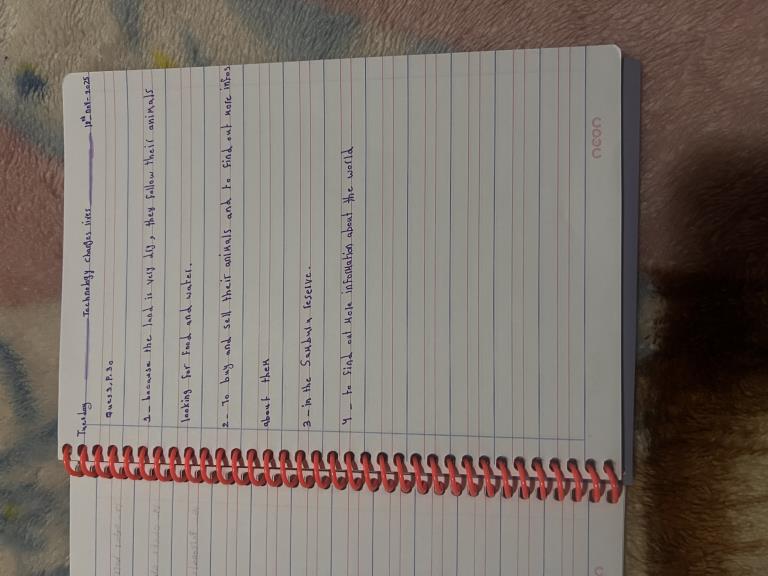 Tuesday Technology changes lives
Ques 3, P. 30
1 - because the land is very dry, they follow their animals
looking for food and water.
2 - To buy and sell their animals and to find out more infos
about them
3 - in the Samburu reserve.
4 - to find out more information about the world
neon